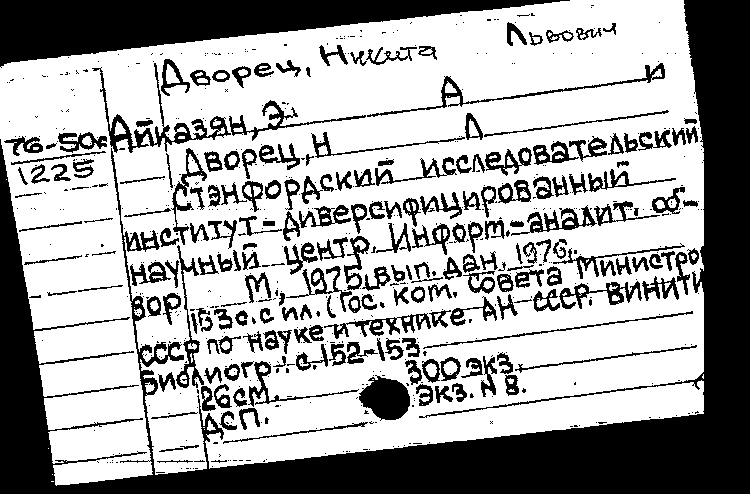 Дворец, Никита Львович
Айказян, Э А И
76-50с
1225
Дворец, Н Л
Стэнфордский исследовательский
институт-диверсифицированный
научный центр. Информ.-аналит. об-
зор. М., 1975, вып. дан. 1976.
153 с. с ил. (Гос. ком. Совета Министро
СССР по науке и технике. АН СССР. ВИНИТИ
Библиогр.: с. 152-153.
26 см. 300 экз.
ДСП. Экз. N 8.